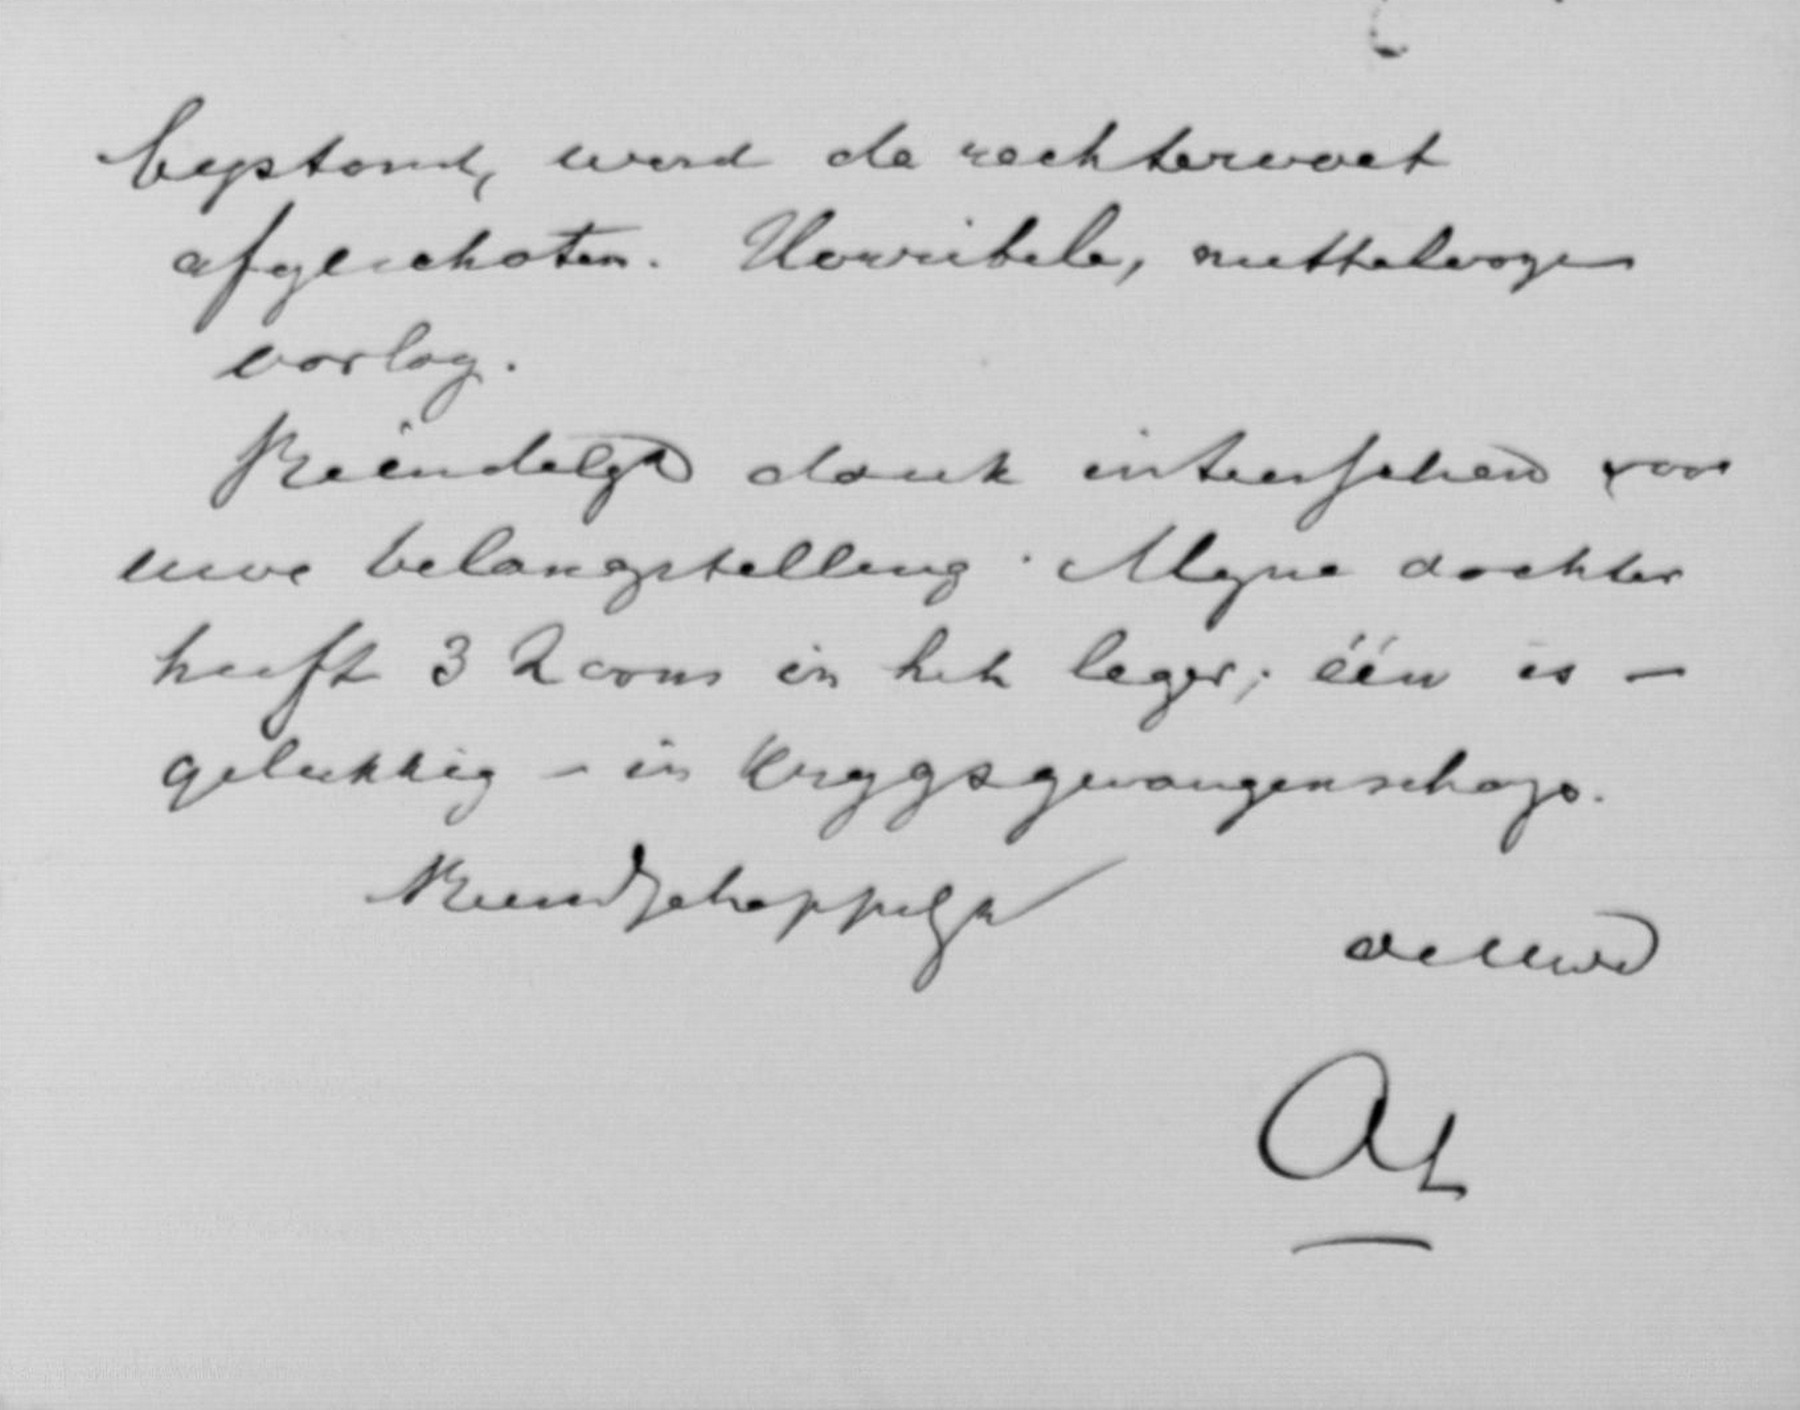 bystond, werd de rechtervoet
afgeschoten. Horribele, nuttelooze
oorlog.
Vriendelyk dank intusschen voor
uwe belangstelling. Myne dochter
heeft 3 zoons in het leger; één is –
gelukkig – in krygsgevangenschap.
Vriendschappelyk
de uwe